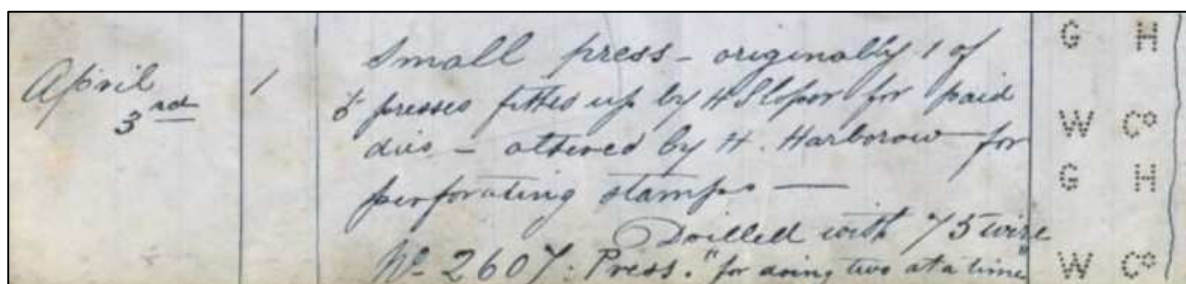 April 3rd 1 Small press - originally 1 of
5 presses fitted up by H Sloper for paid
dies - altered by H. Harborow for
perforating stamps —
Drilled with 75 wire
No 2607: Press. "for doing two at a time"
G H
W Co
G H
W Co